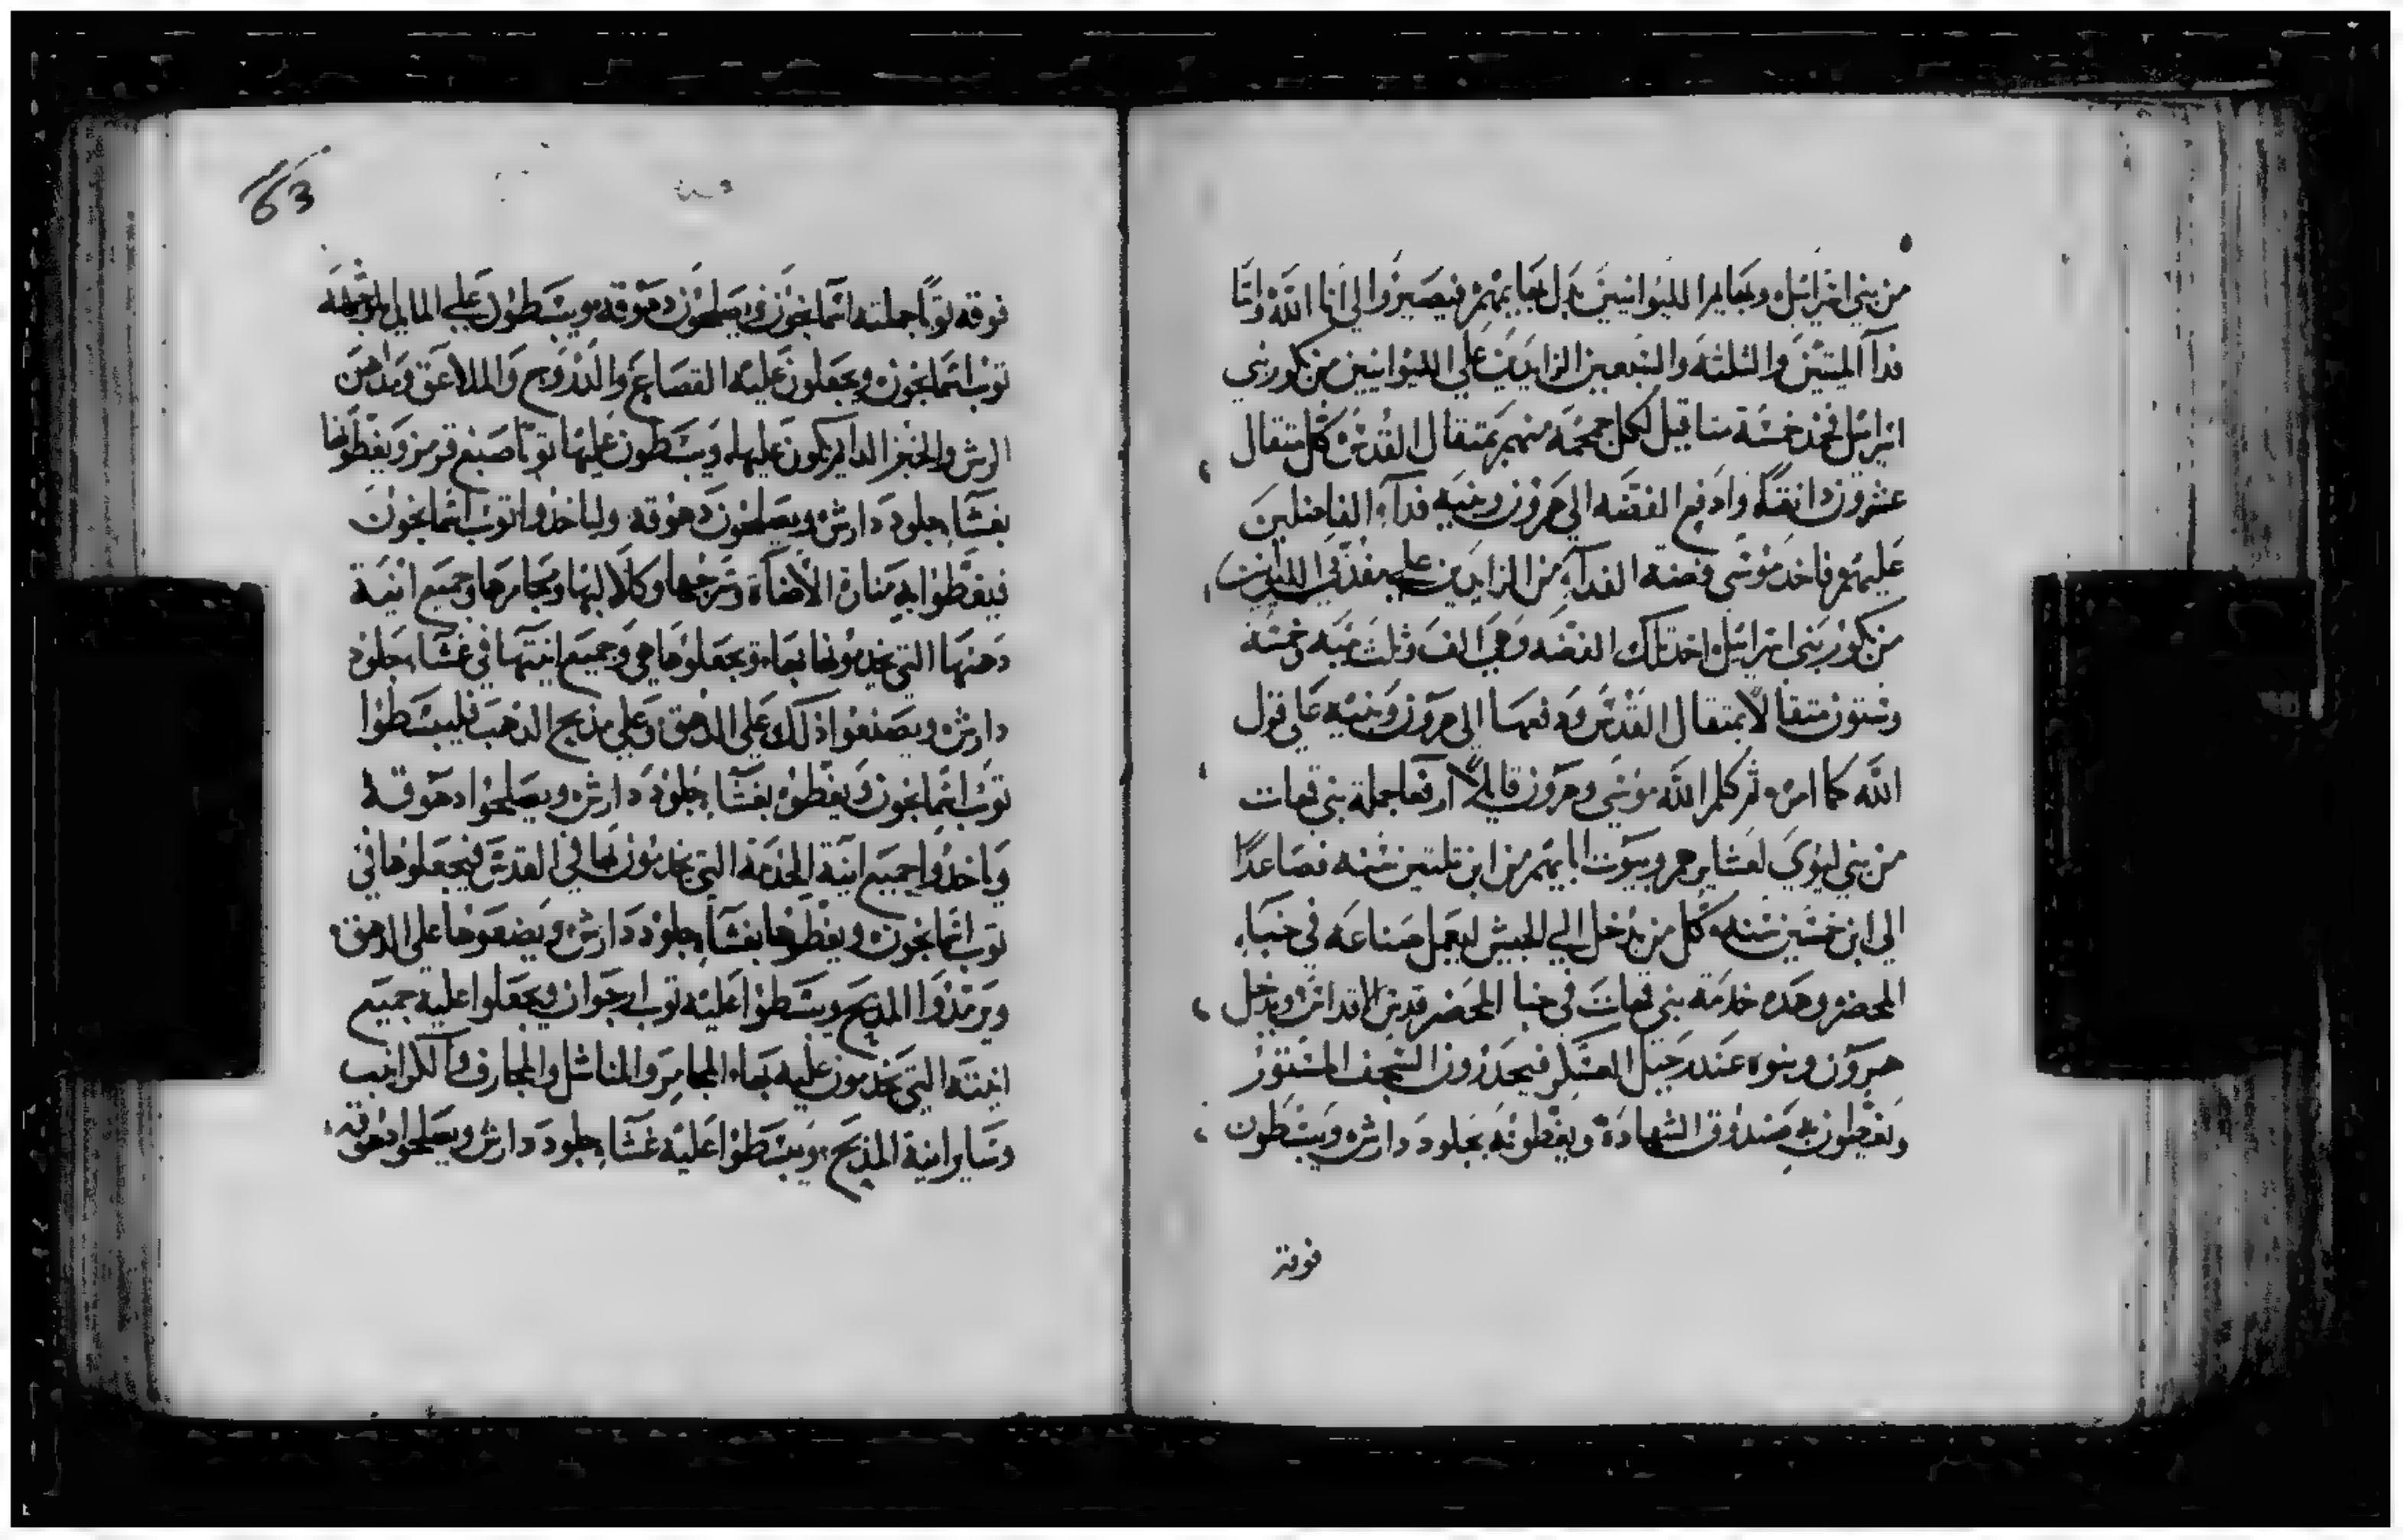 من بني اسرايل وبهايم الليوانيين بدل بهايمهم فيصيروا الي انا الله واما
فدآ الميتين والثلثة والسبعين الزايدين علي الليوانيين من بكور بني
اسرايل فخذ خمسة مثاقيل لكل جمجمة منهم بمثقال القدس كل مثقال
عشرون دانقا وادفع الفضه الي هرون وبنيه فدآ الفاضلين
عليهم فاخذ موسى فضة الفدآ من الزايدين علي
من بكور بني اسرايل اخذ تلك الفضه وهي الف وثلث ميه وخمسة
وستون مثقالا بمثقال القدس ودفعها الي هرون وبنيه علي قول
الله كما امره ثم كلم الله موسي وهرون قايلا ارفعا جملة بني قهات
من بني ليوي لعشايرهم وبيوت ابايهم من ابن ثلثين سنه فصاعدا
الي ابن خمسين سنه كل من يدخل الي الجيش ليعمل صناعه في خبآ
المحضر وهذه خدمة بني قهات في خبا المحضر قدس الاقداس ويدخل
هرون وبنوه عند رحيل العسكر فيحدرون السجف المستور
ويغطون به صندوق الشهادة ويغطونه بجلود دارش ويبسطون
فوقه
63
فوقه ثوبا جملته اسمانجون ويصلحون دهوقه ويبسطون علي المايده
ثوب اسمانجون ويجعلون عليه القصاع والدروج والملاعق ومداهن
الرش والخبز الدايم يكون عليها ويبسطون عليها ثوبا صبغ قرمز ويغطونها
بغشا جلود دارش ويصلحون دهوقه ولياخذوا ثوب اسمانجون
فيغطوا به منارة الاضاة وسرجها وكلاليبها ومجامرها وجميع انية
دهنها التي يخدمونها بها ويجعلوها هي وجميع انيتها في غشا جلود
دارش ويصنعوا ذلك علي الدهق وعلي مذبح الذهب فليبسطوا
ثوب اسمانجون ويغطوه بغشا جلود دارش ويصلحوا دهوقه
وياخذوا جميع انية الخدمة التي يخدمون بها في القدس فيجعلوها في
ثوب اسمانجون ويغطوها بغشا جلود دارش ويضعوها علي الدهق
ويرمدوا المذبح ويبسطوا عليه ثوب ارجوان ويجعلوا عليه جميع
انيته التي يخدمون عليه بها المجامر والمناشل والمجارف والكرانيب
وساير انية المذبح ويبسطوا عليه غشا جلود دارش ويصلحوا دهوقه